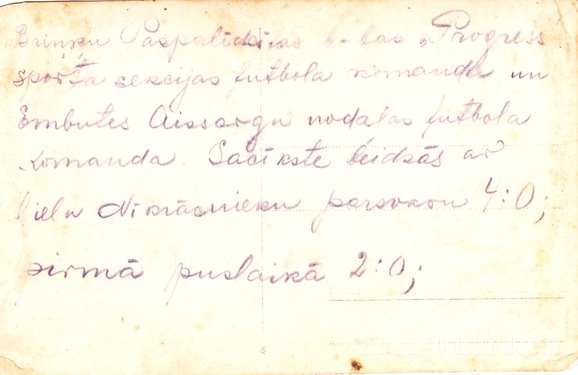 Briņķu Paspalīdzības b-bas „Progress
sporta sekcijas futbola komanda un
Embutes Aissargu nodaļas futbola
komanda. Sacīkste beidzās ar
lielu Nikrācnieku parsvaru 4:0;
pirmā puslaikā 2:0;